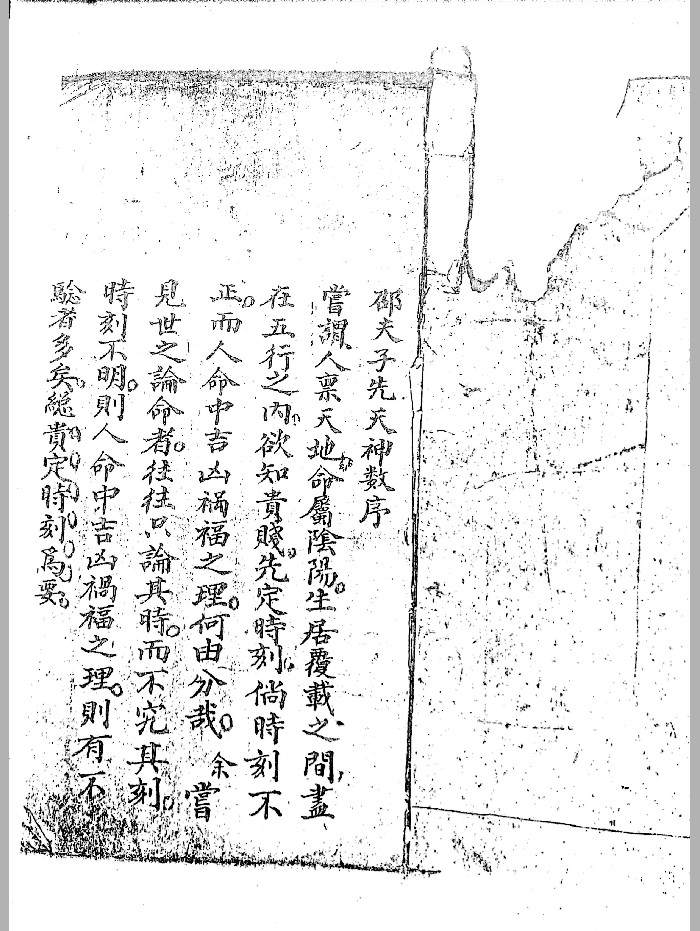 邵夫子先天神数序
嘗謂人稟天地命屬陰陽。生居覆載之間,盡
在五行之內。欲知貴賤。先定時刻。倘時刻不
正。而人命中吉凶禍福之理。何由分哉。余嘗
見世之論命者。往往只論其時。而不究其刻。
時刻不明。則人命中吉凶禍福之理。則有不
驗者多矣。總貴定時刻爲要。